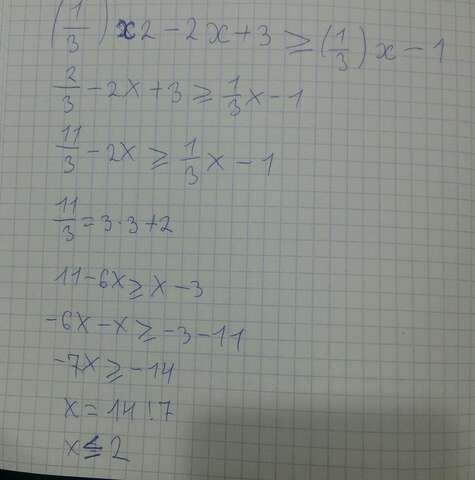 (1/3) x2 - 2x + 3 ≥ (1/3) x - 1
2/3 - 2x + 3 ≥ 1/3 x - 1
11/3 - 2x ≥ 1/3 x - 1
11/3 = 3·3+2
11-6x ≥ x - 3
-6x - x ≥ -3 - 11
-7x ≥ -14
x = 14!7
x ≤ 2